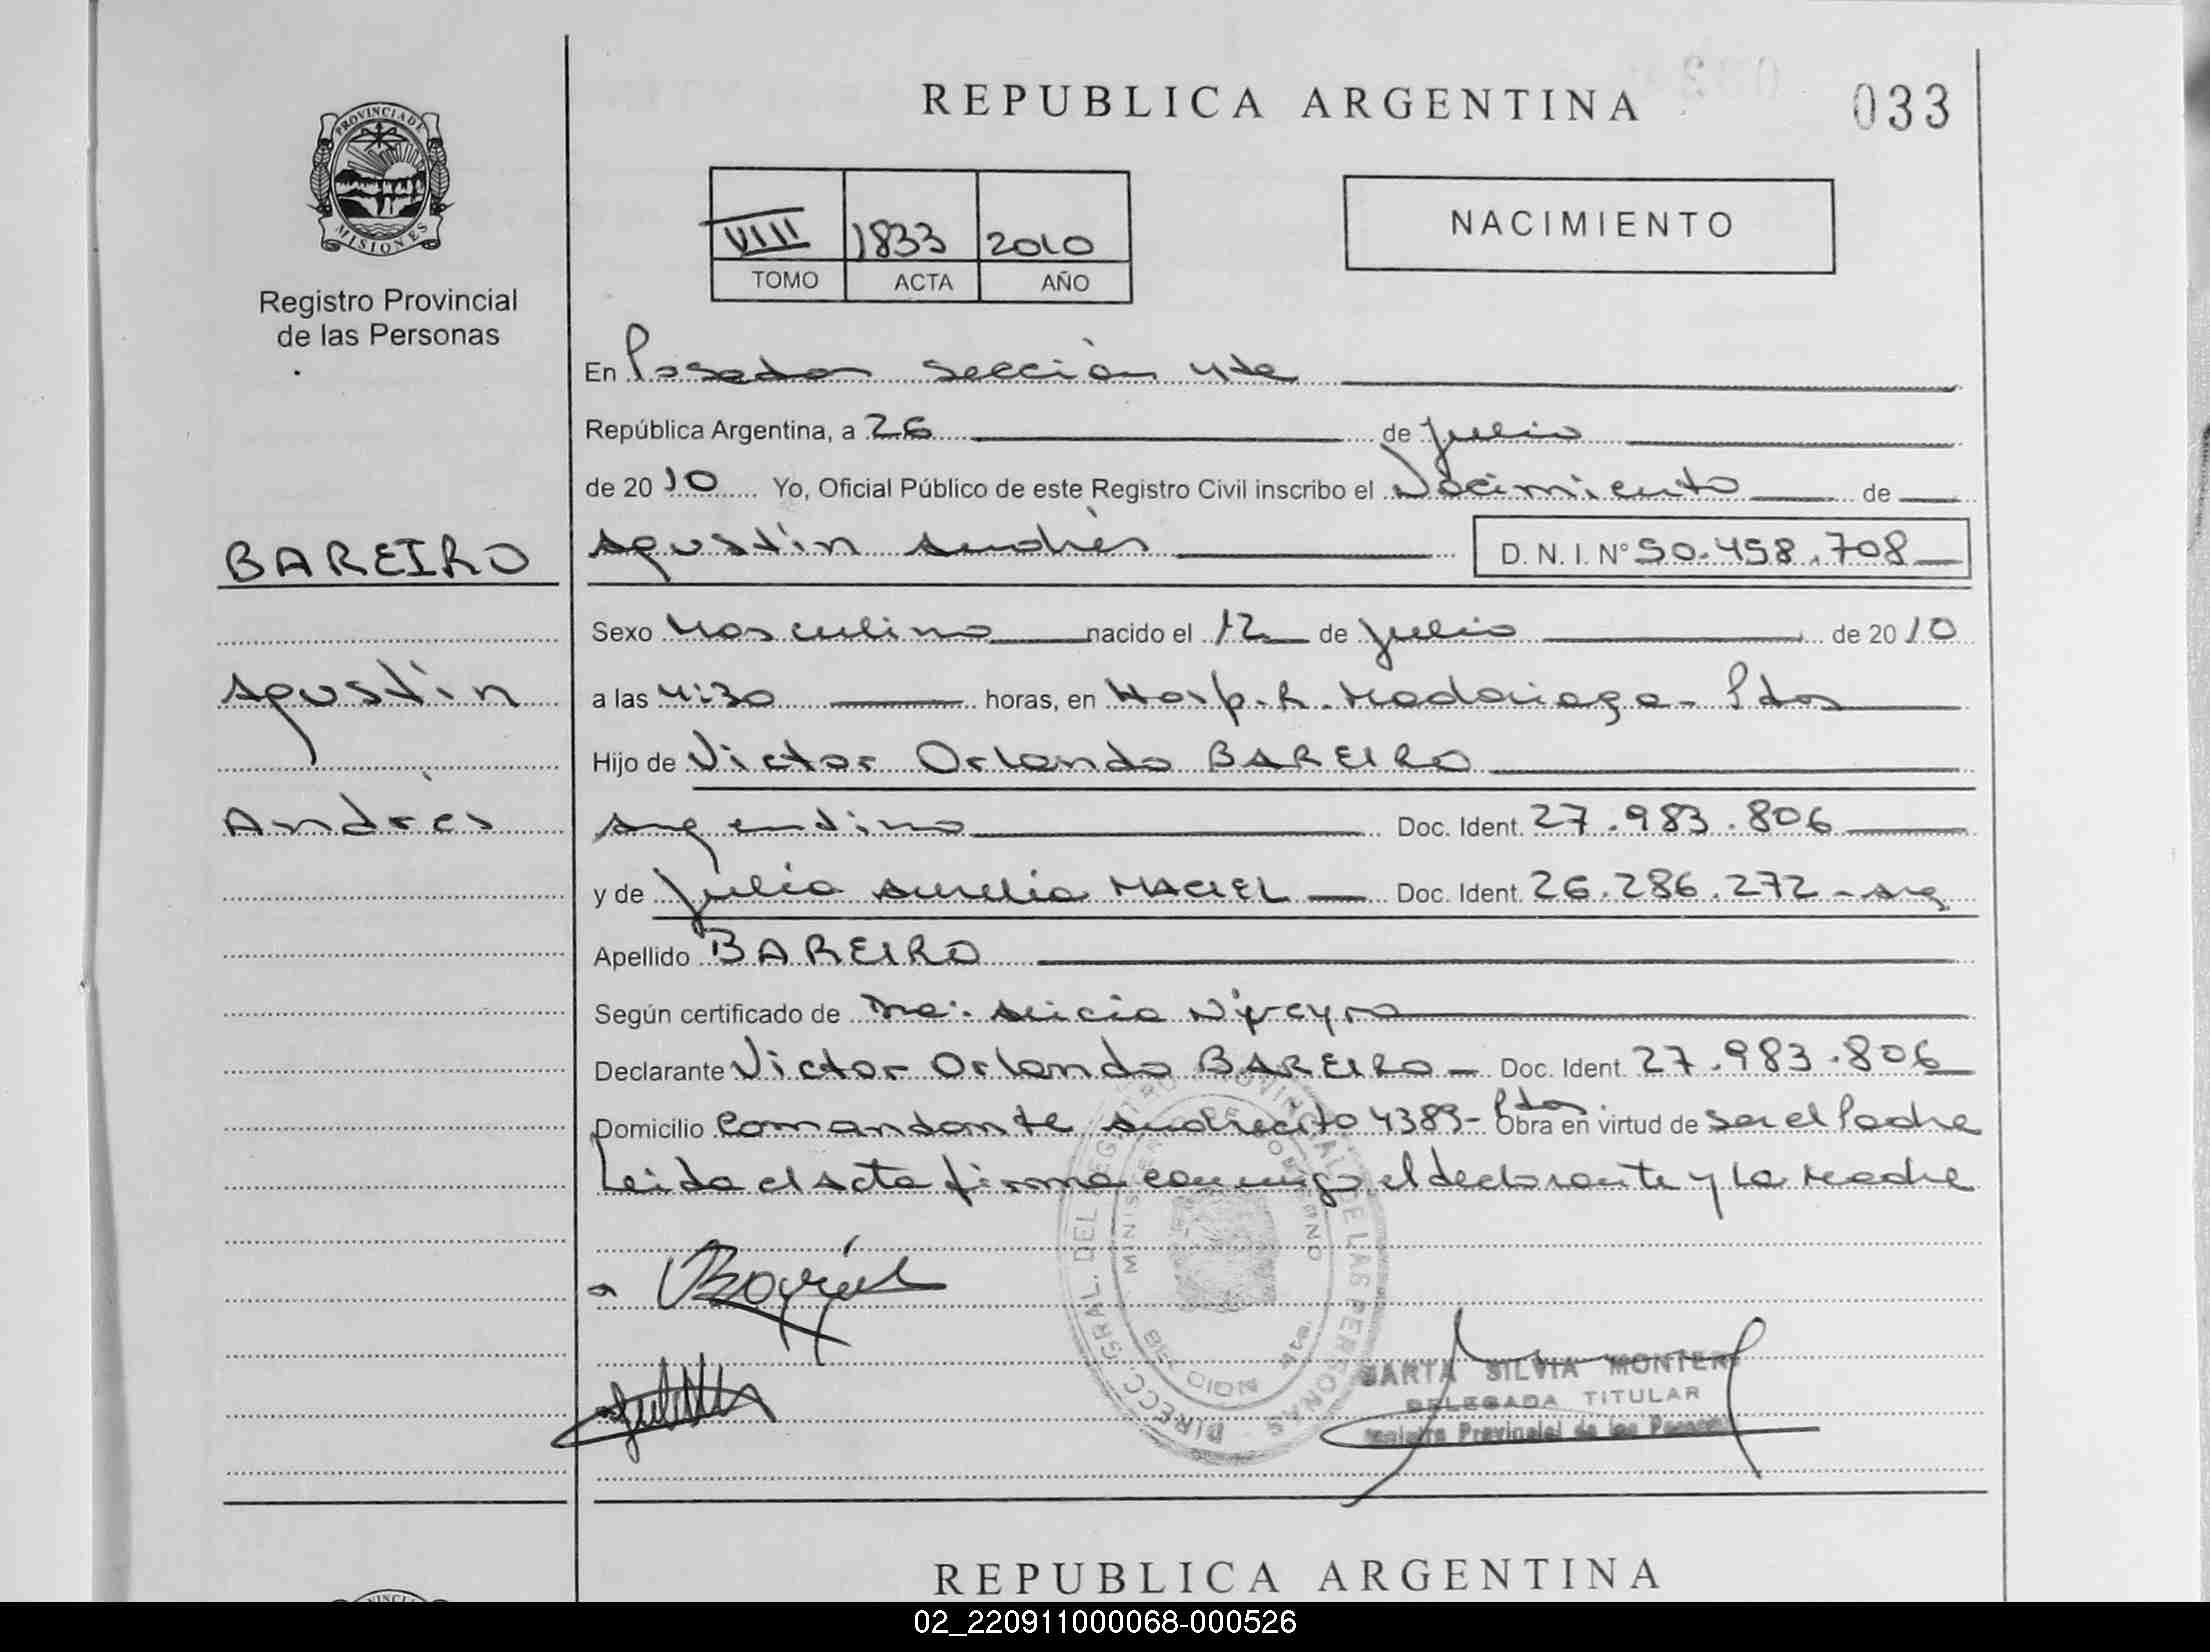 REPUBLICA ARGENTINA
033
PROVINCIA DE
MISIONES
Registro Provincial
de las Personas
VIII 1833 2010
TOMO ACTA AÑO
NACIMIENTO
En Posadas sección 4ta
República Argentina, a 26 de Julio
de 2010 Yo, Oficial Público de este Registro Civil inscribo el Nacimiento de
BAREIRO
Agustín
Andrés
Agustín Andrés D. N. I. N° 50.458.708
Sexo Masculino nacido el 12 de Julio de 2010
a las 4:30 horas, en Hosp. R. Madariaga - Pdas
Hijo de Victor Orlando BAREIRO
Argentino Doc. Ident. 27.983.806
y de Julia Aurelia MACIEL Doc. Ident. 26.286.272 - Arg
Apellido BAREIRO
Según certificado de Alicia
Declarante Victor Orlando BAREIRO - Doc. Ident. 27.983.806
Domicilio Comandante Andrecito 4389 - Pdas. Obra en virtud de Ser el Padre
Leida el Acta firma conmigo el declarante y la Madre
DIRECC. GRAL. DEL REGISTRO PROVINCIAL DE LAS PERSONAS
MINISTERIO DE GOBIERNO
MARTA SILVIA MONTERO
DELEGADA TITULAR
Registro Provincial de las Personas
REPUBLICA ARGENTINA
02_220911000068-000526